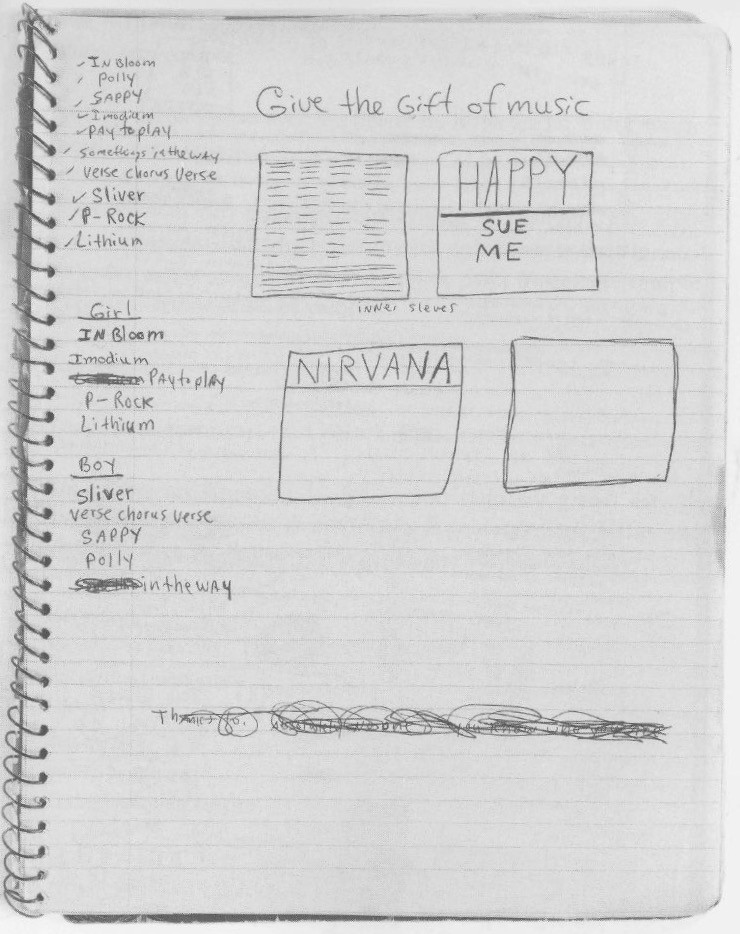 IN Bloom
Polly
SAPPY
Imodium
PAY to PLAY
Somethings in the WAY
Verse chorus Verse
Sliver
P-Rock
Lithium
Give the Gift of music
HAPPY
SUE
ME
inner sleves
Girl
IN Bloom
Imodium
PAY to PlAy
P-Rock
Lithium
NIRVANA
BOY
Sliver
Verse chorus Verse
SAPPY
Polly
in the WAY